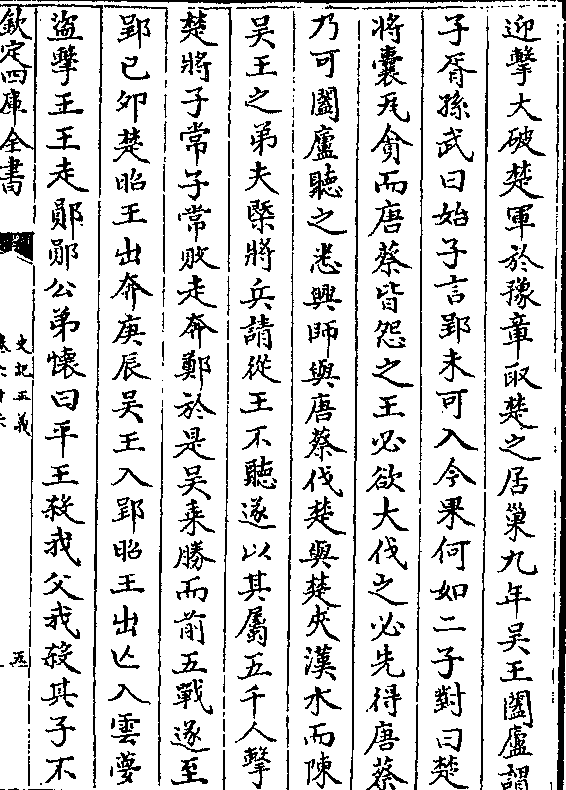 迎擊大破楚軍於豫章取楚之居巢九年吳王闔廬謂
子胥孫武曰始子言郢未可入今果何如二子對曰楚
將囊瓦貪而唐蔡皆怨之王必欲大伐之必先得唐蔡
乃可闔廬聽之悉興師與唐蔡伐楚與楚夾漢水而陳
吳王之弟夫槩將兵請從王不聽遂以其屬五千人擊
楚將子常子常敗走奔鄭於是吳乗勝而前五戰遂至
郢已夘楚昭王出奔庚辰吳王入郢昭王出亡入雲夢
盜擊王王走鄖鄖公弟懐曰平王殺我父我殺其子不
欽定四庫全書
史記正義
卷六十六
五